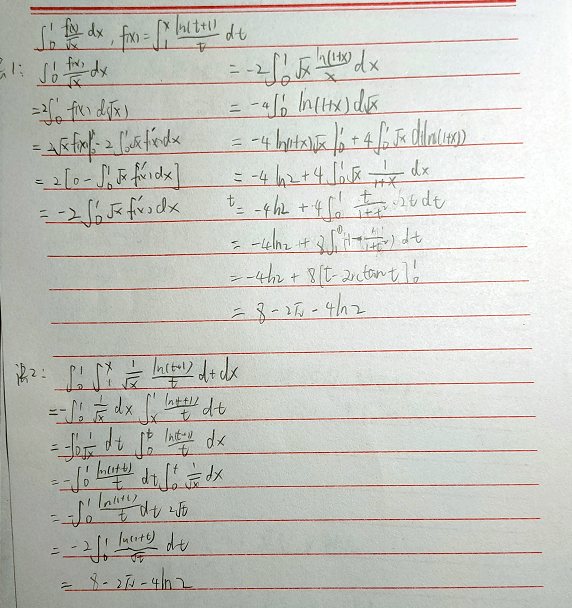 ∫₀¹ f(x)/√x dx, f(x)=∫₁ˣ ln(t+1)/t dt
1: ∫₀¹ f(x)/√x dx
=2∫₀¹ f(x) d(√x)
=2√x f(x)|₀¹ -2∫₀¹ √x f'(x) dx
=2[0-∫₀¹ √x f'(x) dx]
=-2∫₀¹ √x f'(x) dx
=-2∫₀¹ √x ln(1+x)/x dx
=-4∫₀¹ ln(1+x) d√x
=-4 ln(1+x)√x|₀¹ +4∫₀¹ √x d(ln(1+x))
=-4 ln2+4∫₀¹ √x 1/(1+x) dx
t=-4ln2 +4∫₀¹ t/(1+t²) ·2t dt
=-4ln2+8∫(1-1/(1+t²)) dt
=-4ln2+8[t-arctan t]₀¹
=8-2π-4ln2
法2: ∫₀¹ ∫₁ˣ 1/√x ln(t+1)/t dt dx
=-∫₀¹ 1/√x dx ∫ₓ¹ ln(t+1)/t dt
=-∫₀¹ 1/√x dt ∫₀ᵗ ln(t+1)/t dx
=-∫₀¹ ln(1+t)/t dt ∫₀ᵗ 1/√x dx
=-∫₀¹ ln(1+t)/t dt 2√t
=-2∫₀¹ ln(1+t)/√t dt
= 8-2π-4ln2